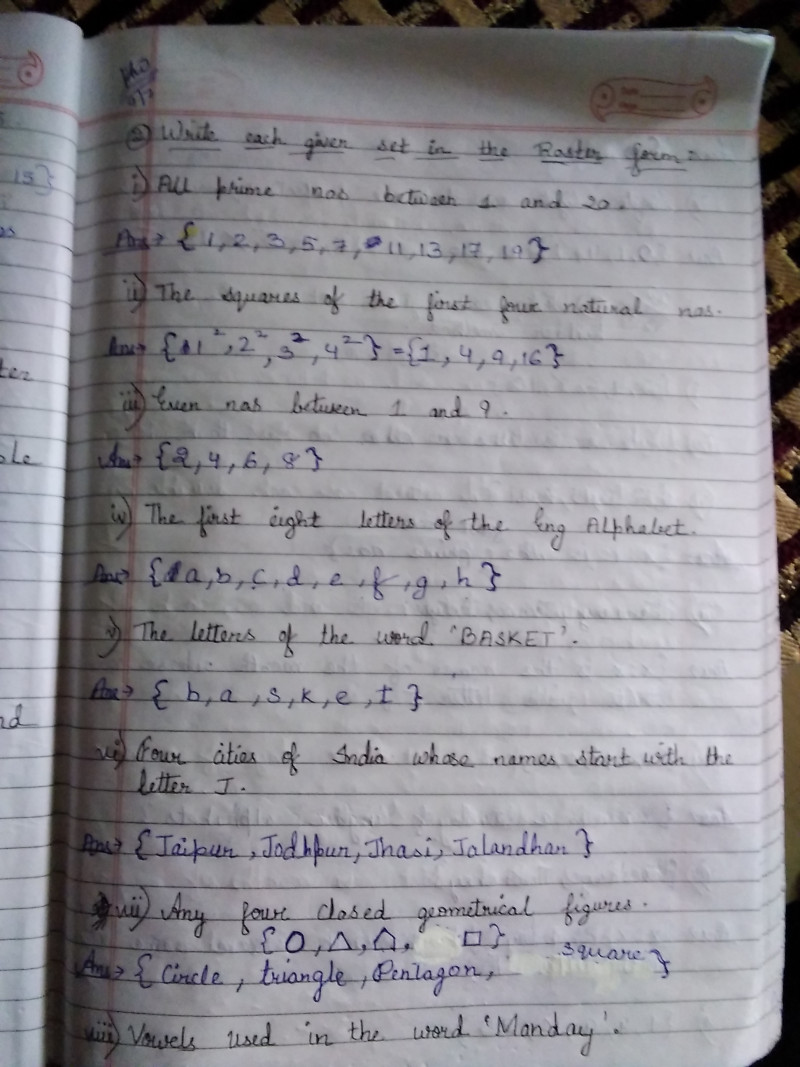 15}
② Write each given set in the Roster form:-
i) All prime nos between 1 and 20.
Ans→ {1, 2, 3, 5, 7, 11, 13, 17, 19}
ii) The squares of the first four natural nos.
Ans→ {1², 2², 3², 4²} = {1, 4, 9, 16}
iii) Even nos between 1 and 9.
Ans→ {2, 4, 6, 8}
iv) The first eight letters of the Eng Alphabet.
Ans→ {a, b, c, d, e, f, g, h}
v) The letters of the word 'BASKET'.
Ans→ { b, a, s, k, e, t }
vi) Four cities of India whose names start with the
letter J.
Ans→ { Jaipur, Jodhpur, Jhasi, Jalandhar }
vii) Any four closed geometrical figures.
{○, △, ⬠, □}
Ans→ { Circle, triangle, Pentagon, square }
viii) Vowels used in the word 'Monday'.